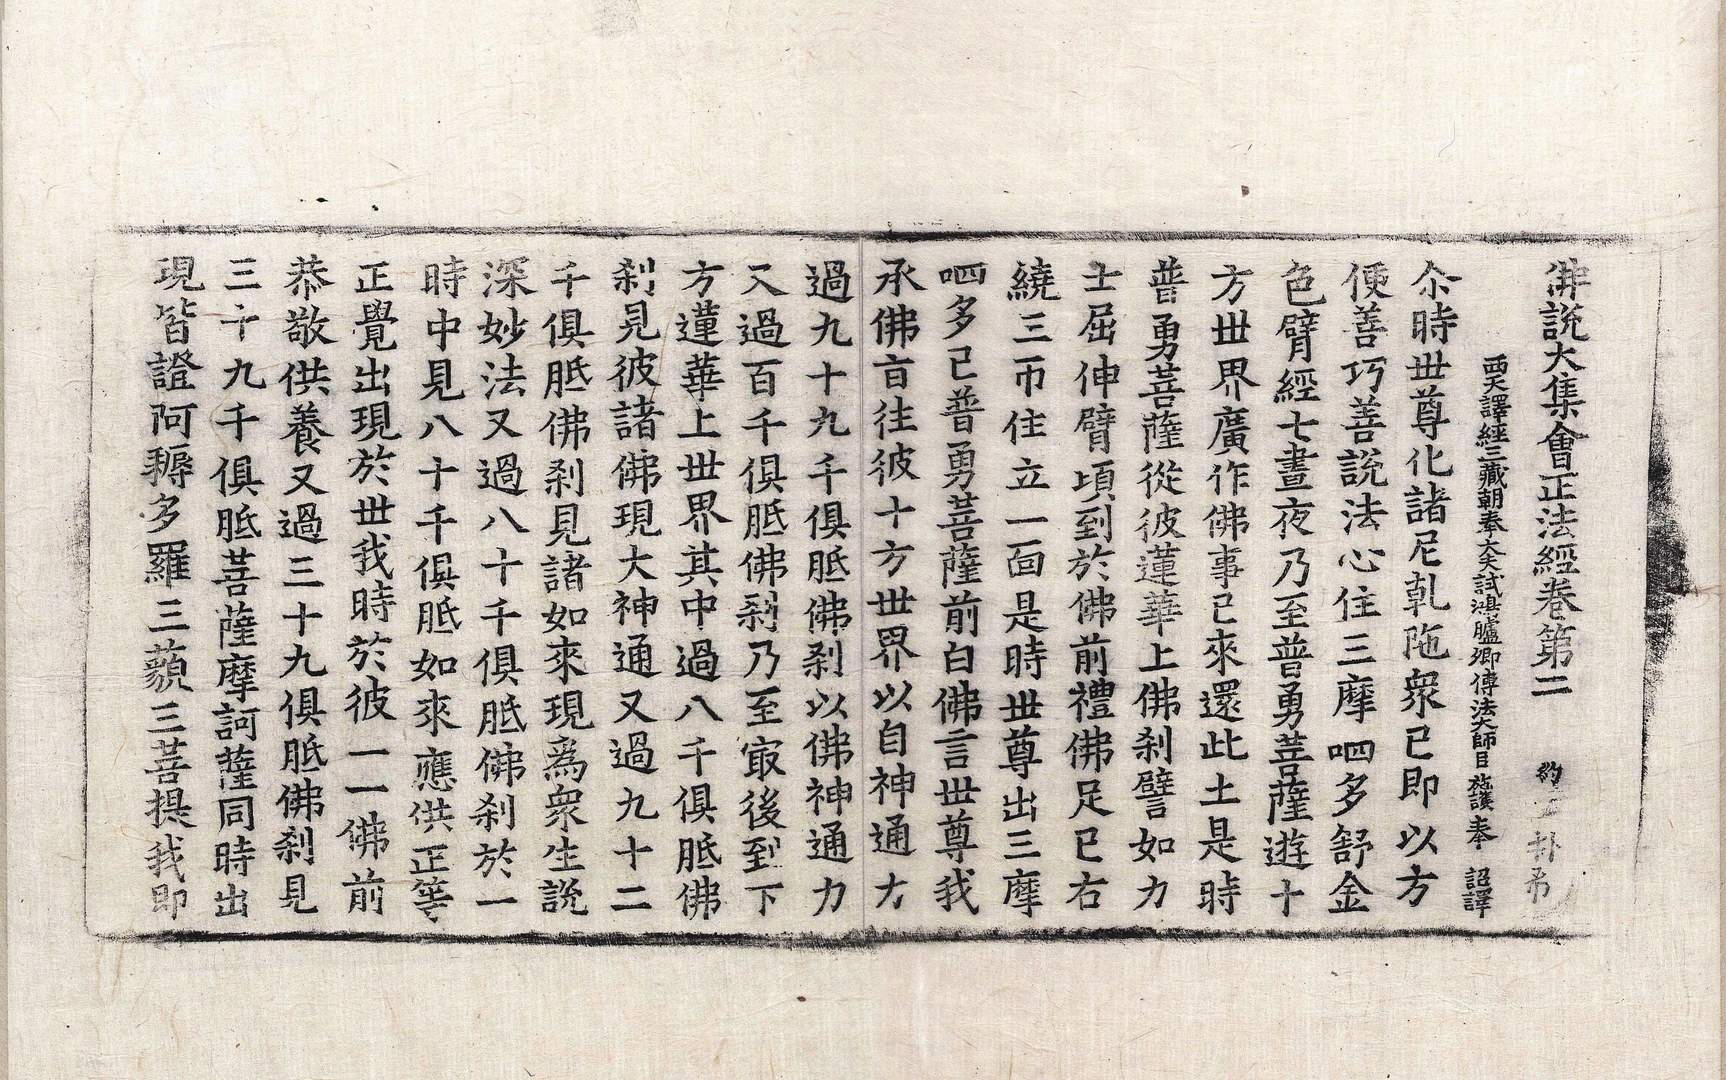 佛說大集會正法經卷第二 約
西天譯經三藏朝奉大夫試鴻臚卿傳法大師臣施護奉 詔譯
尒時世尊化諸尼乹陁衆已即以方
便善巧善說法心住三摩呬多舒金
色臂經七晝夜乃至普勇菩薩遊十
方世界廣作佛事已來還此土是時
普勇菩薩從彼蓮華上佛刹譬如力
士屈伸臂頃到於佛前禮佛足已右
繞三帀住立一面是時世尊出三摩
呬多已普勇菩薩前白佛言世尊我
承佛旨往彼十方世界以自神通力
過九十九千俱胝佛刹以佛神通力
又過百千俱胝佛刹乃至㝡後到下
方蓮華上世界其中過八千俱胝佛
刹見彼諸佛現大神通又過九十二
千俱胝佛刹見諸如來現爲衆生說
深妙法又過八十千俱胝佛刹於一
時中見八十千俱胝如來應供正等
正覺出現於世我時於彼一一佛前
恭敬供養又過三十九俱胝佛刹見
三十九千俱胝菩薩摩訶薩同時出
現皆證阿耨多羅三藐三菩提我即